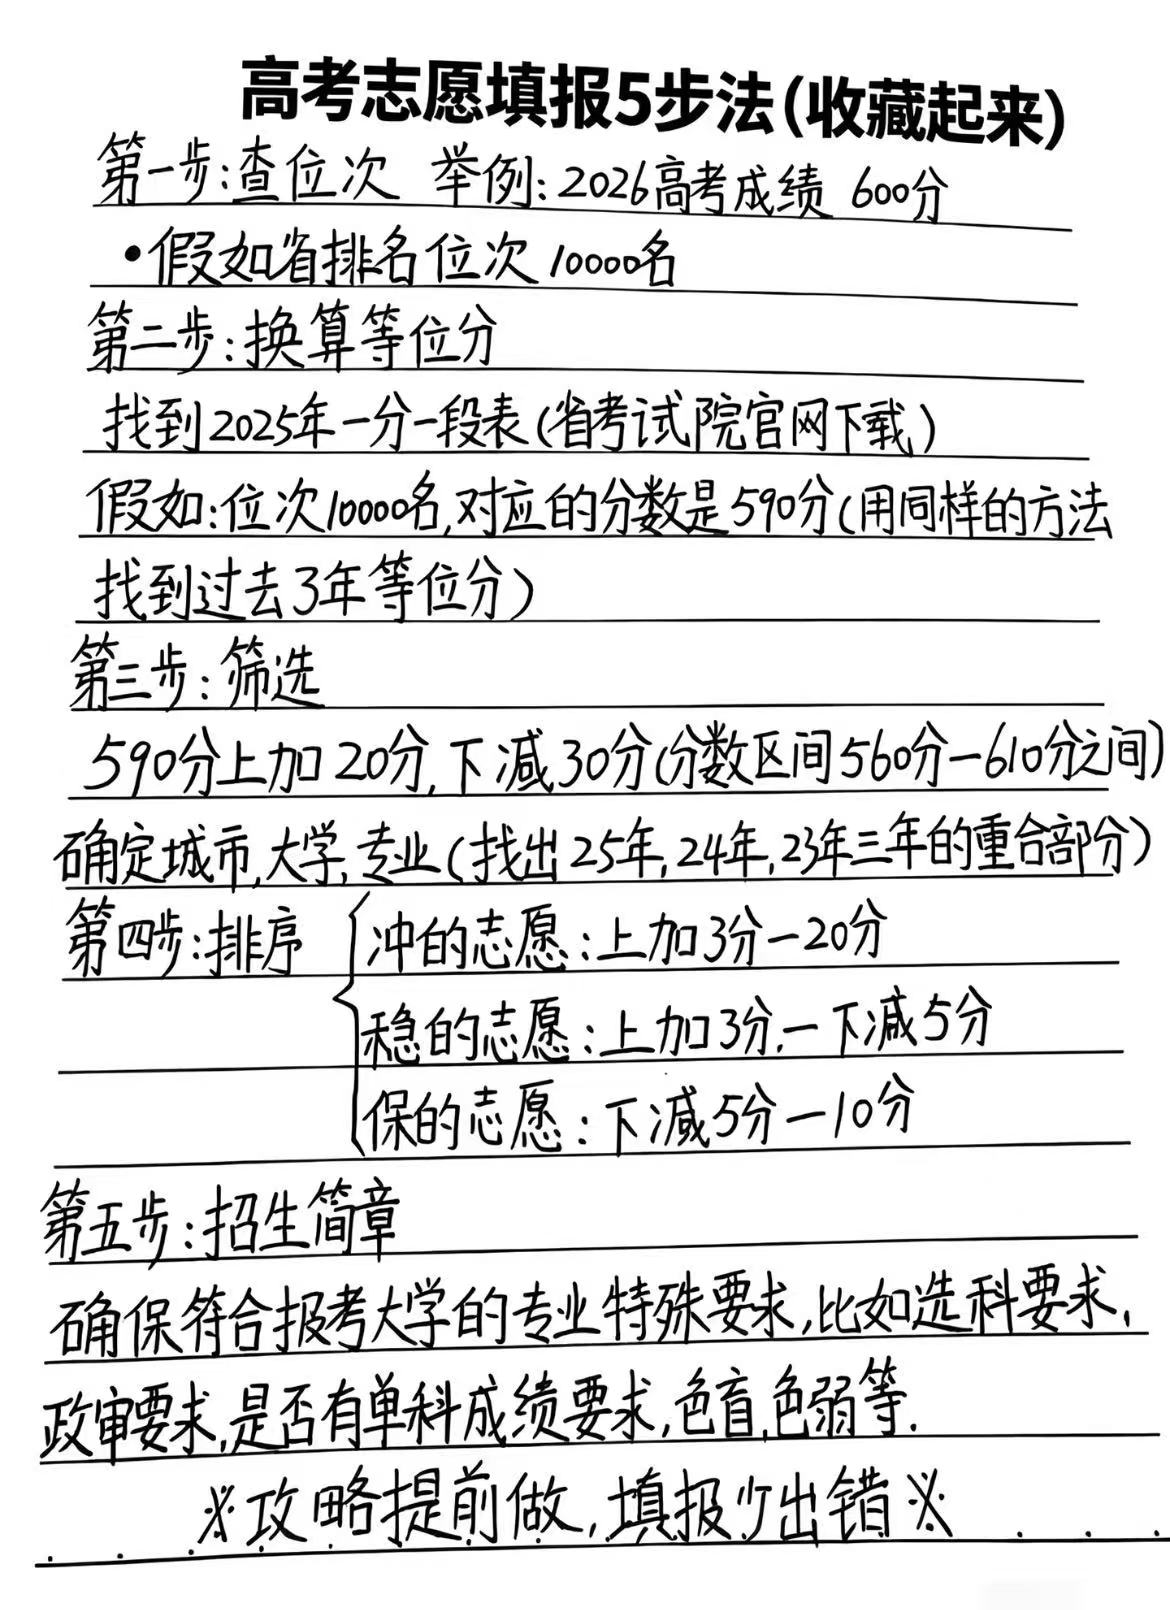 高考志愿填报5步法(收藏起来)
第一步:查位次 举例:2026高考成绩 600分
•假如省排名位次10000名
第二步:换算等位分
找到2025年一分一段表(省考试院官网下载)
假如:位次10000名,对应的分数是590分(用同样的方法
找到过去3年等位分)
第三步:筛选
590分上加20分,下减30分(分数区间560分—610分之间)
确定城市,大学,专业(找出25年,24年,23年三年的重合部分)
第四步:排序
冲的志愿:上加3分—20分
稳的志愿:上加3分.—下减5分
保的志愿:下减5分—10分
第五步:招生简章
确保符合报考大学的专业特殊要求,比如选科要求,
政审要求,是否有单科成绩要求,色盲,色弱等.
※攻略提前做,填报少出错※